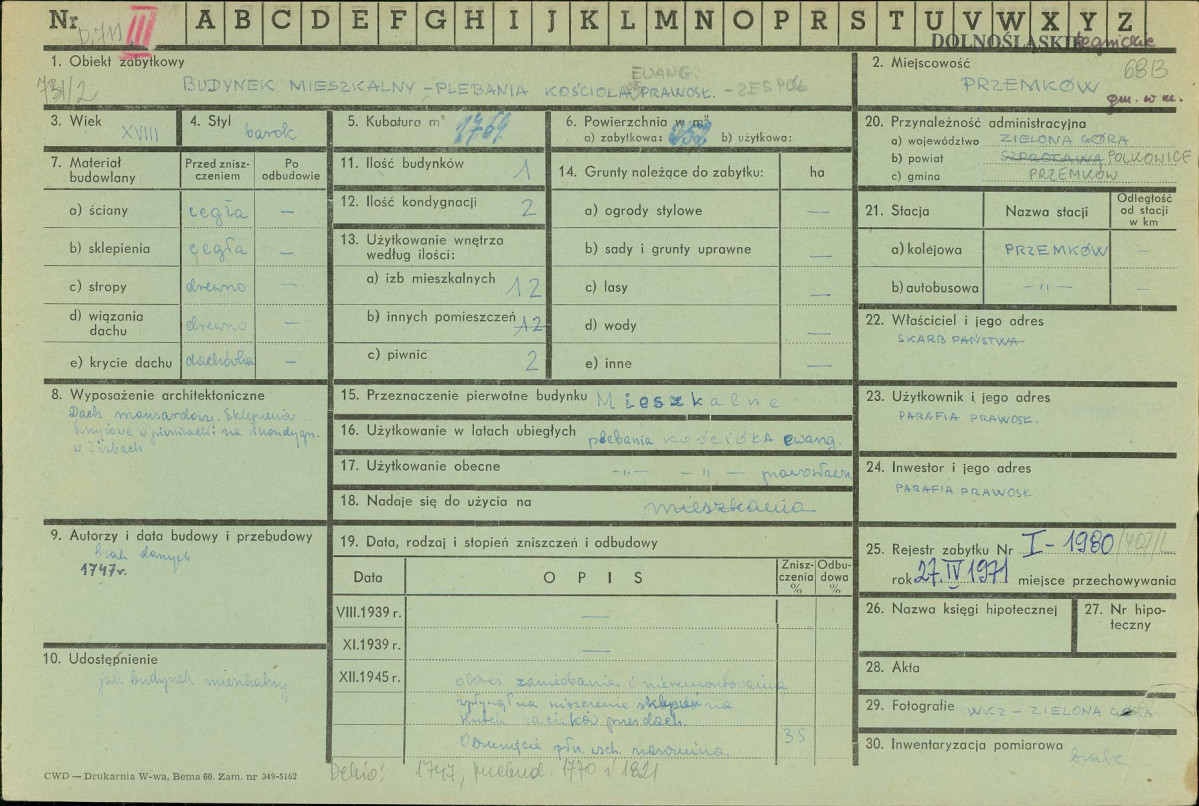 Nr D.711 III A B C D E F G H I J K L M N O P R S T U V W X Y Z
DOLNOŚLĄSKIE legnickie
1. Obiekt zabytkowy
731/2
EWANG.
BUDYNEK MIESZKALNY - PLEBANIA KOŚCIOŁA PRAWOSŁ. - ZESPÓŁ
2. Miejscowość 6813
PRZEMKÓW
gm. w m.
3. Wiek XVIII
4. Styl barok
5. Kubatura m³ 1767
6. Powierzchnia w m²
a) zabytkowa: 252 b) użytkowa:
20. Przynależność administracyjna
a) województwo ZIELONA GÓRA
b) powiat SZPROTAWA POLKOWICE
c) gmina PRZEMKÓW
7. Materiał budowlany
Przed znisz-
czeniem
Po
odbudowie
a) ściany cegła —
b) sklepienia cegła —
c) stropy drewno —
d) wiązania
dachu drewno —
e) krycie dachu dachówka —
11. Ilość budynków 1
12. Ilość kondygnacji 2
13. Użytkowanie wnętrza
według ilości:
a) izb mieszkalnych 12
b) innych pomieszczeń 12
c) piwnic 2
14. Grunty należące do zabytku: ha
a) ogrody stylowe —
b) sady i grunty uprawne —
c) lasy —
d) wody —
e) inne —
21. Stacja Nazwa stacji
Odległość
od stacji
w km
a) kolejowa PRZEMKÓW —
b) autobusowa —"— —
22. Właściciel i jego adres
SKARB PAŃSTWA
8. Wyposażenie architektoniczne
Dach mansardowy. Sklepienia
krzyżowe w piwnicach i na I kondygn.
w izbach
15. Przeznaczenie pierwotne budynku Mieszkalne
16. Użytkowanie w latach ubiegłych plebania KOŚCIOŁA ewang.
17. Użytkowanie obecne —"— —"— prawosławn.
18. Nadaje się do użycia na mieszkania
23. Użytkownik i jego adres
PARAFIA PRAWOSŁ.
24. Inwestor i jego adres
PARAFIA PRAWOSŁ.
9. Autorzy i data budowy i przebudowy
brak danych
1747r.
19. Data, rodzaj i stopień zniszczeń i odbudowy
Data O P I S
Znisz-
czenia
%
Odbu-
dowa
%
VIII.1939 r. —
XI.1939 r. —
XII.1945 r. okres zaniedbania i nieremontowania
wpłynął na niszczenie sklepień na
skutek zacieków przez dach.
Obsunięcie płn. wsch. narożnika 35
25. Rejestr zabytku Nr I-1980/407/L
rok 27.IV 1971 miejsce przechowywania
26. Nazwa księgi hipotecznej
27. Nr hipo-
teczny
10. Udostępnienie
jak budynek mieszkalny
28. Akta
29. Fotografie WKZ - ZIELONA GÓRA
30. Inwentaryzacja pomiarowa brak
CWD — Drukarnia W-wa, Bema 60. Zam. nr 349-5162
Dehio: 1747, przebud. 1770 i 1821